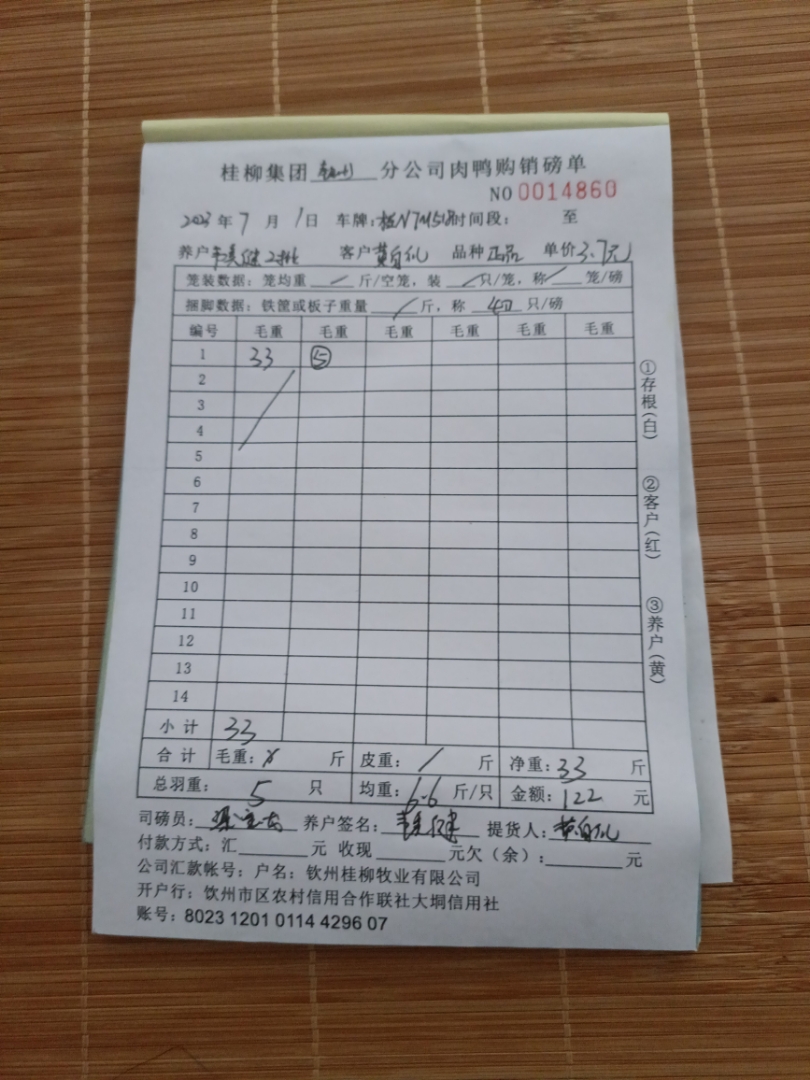 桂柳集团 钦州 分公司肉鸭购销磅单
NO 0014860
2023 年 7 月 1 日 车牌: 时间段: 至
养户 客户 黄自礼 品种 正品 单价 3.7元
笼装数据: 笼均重 / 斤/空笼, 装 / 只/笼, 称 / 笼/磅
捆脚数据: 铁筐或板子重量 / 斤, 称 只/磅
编号 毛重 毛重 毛重 毛重 毛重 毛重
1 33 ⑤
2
3
4
5
6
7
8
9
10
11
12
13
14
小计 33
合计 毛重: 斤 皮重: / 斤 净重: 33 斤
总羽重: 5 只 均重: 6.6 斤/只 金额: 122 元
司磅员: 养户签名: 提货人: 黄自礼
付款方式: 汇 元 收现 元欠(余): 元
公司汇款帐号: 户名: 钦州桂柳牧业有限公司
开户行: 饮州市区农村信用合作联社大垌信用社
账号: 8023 1201 0114 4296 07
①存根(白)
②客户(红)
③养户(黄)